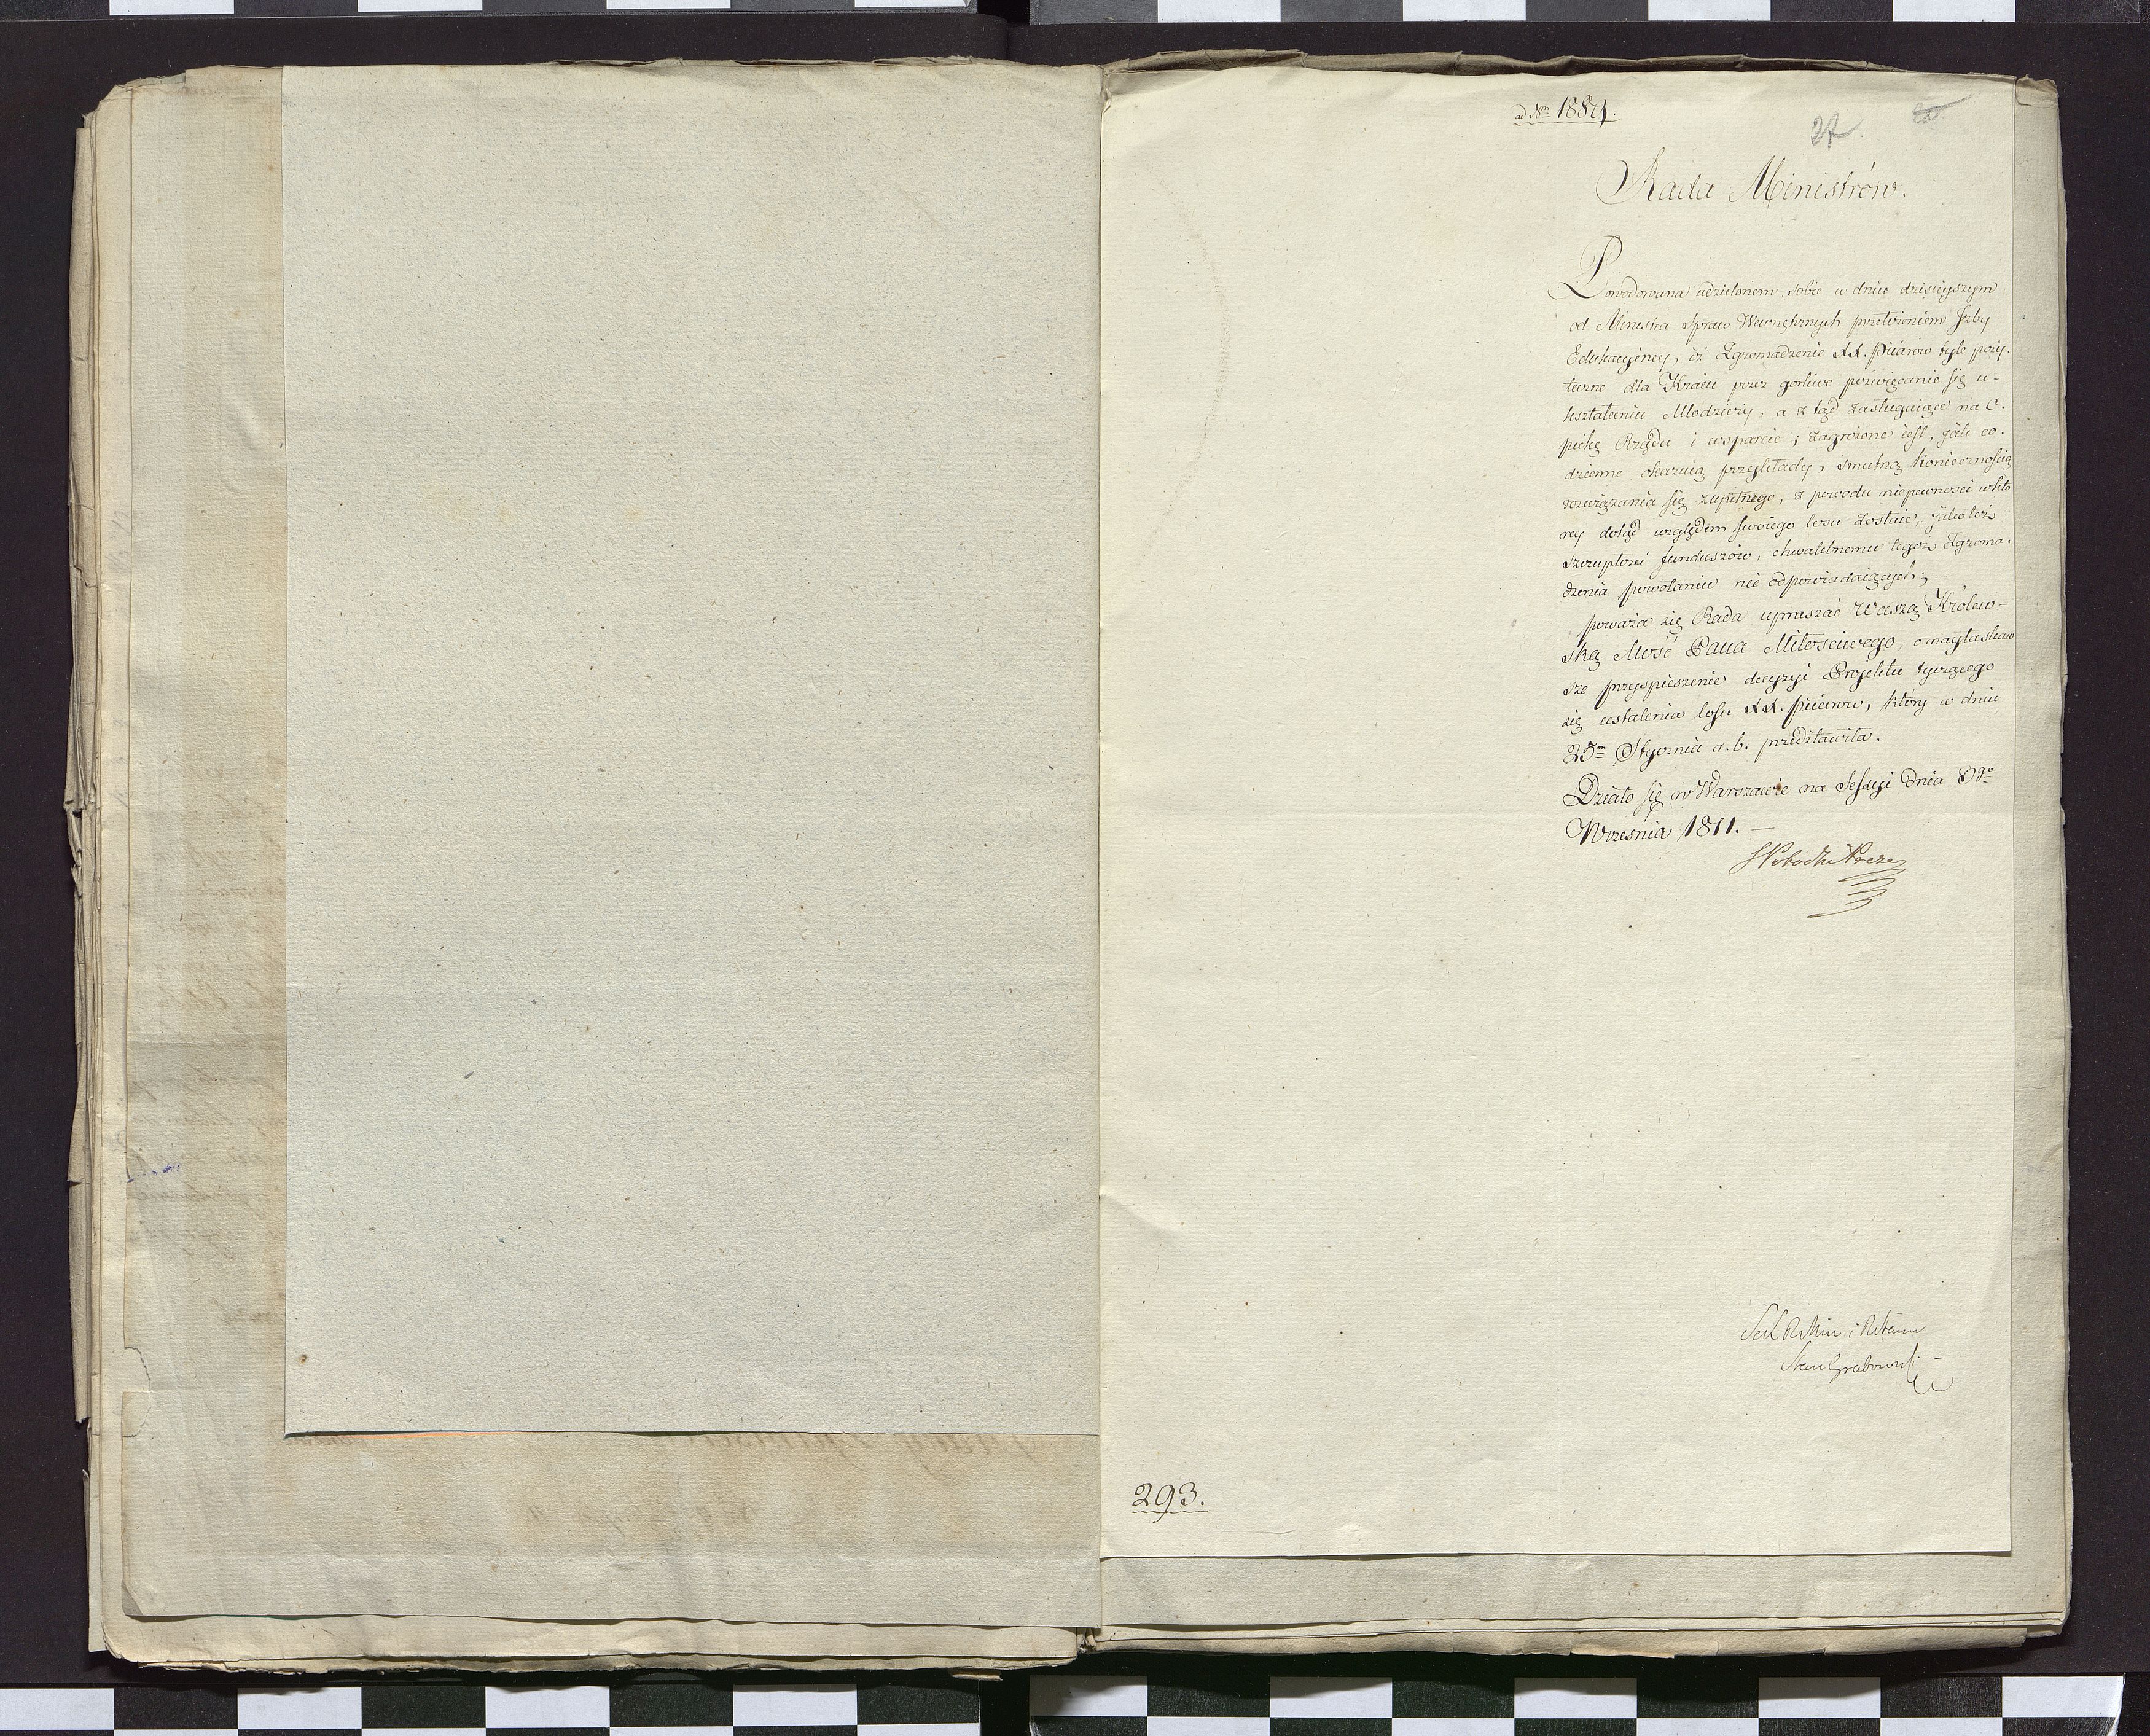 ad Nm 1884.
27.
20
Rada Ministrów.
Powodowana udzielonem sobie w dniu dzisieyszym
od Ministra Spraw Wewnętrznych przełożeniem Jzby
Edukacyiney, iż Zgromadzenie XX. Piiarów tyle poży-
teczne dla Kraiu przez gorliwe poświęcanie się u-
kształceniu Młodzieży, a z tąd zasługuiące na O-
piekę Rządu i wsparcie, zagrożone iest, jak co-
dzienne okazuią przykłady, smutną koniecznością
rozwiązania się zupełnego, z powodu niepewności w któ
rey dotąd względem swoiego losu zostaie, jako też
szczupłości funduszów, chwalebnemu tegoż Zgroma-
dzenia powołaniu nie odpowiadaiących;
poważa się Rada upraszać Waszą Królew-
ską Mość Pana Miłościwego, o nayłaskaw
sze przyspieszenie decyzyi Projektu tyczącego
się ustalenia losu XX. Piiarów, który w dniu
25m Stycznia r. b. przedstawiła.
Działo się w Warszawie na Sessyi dnia 8go
Września 1811. —
Potocki Prezes
Sek R Min i R Stanu
Stan Grabowski
293.